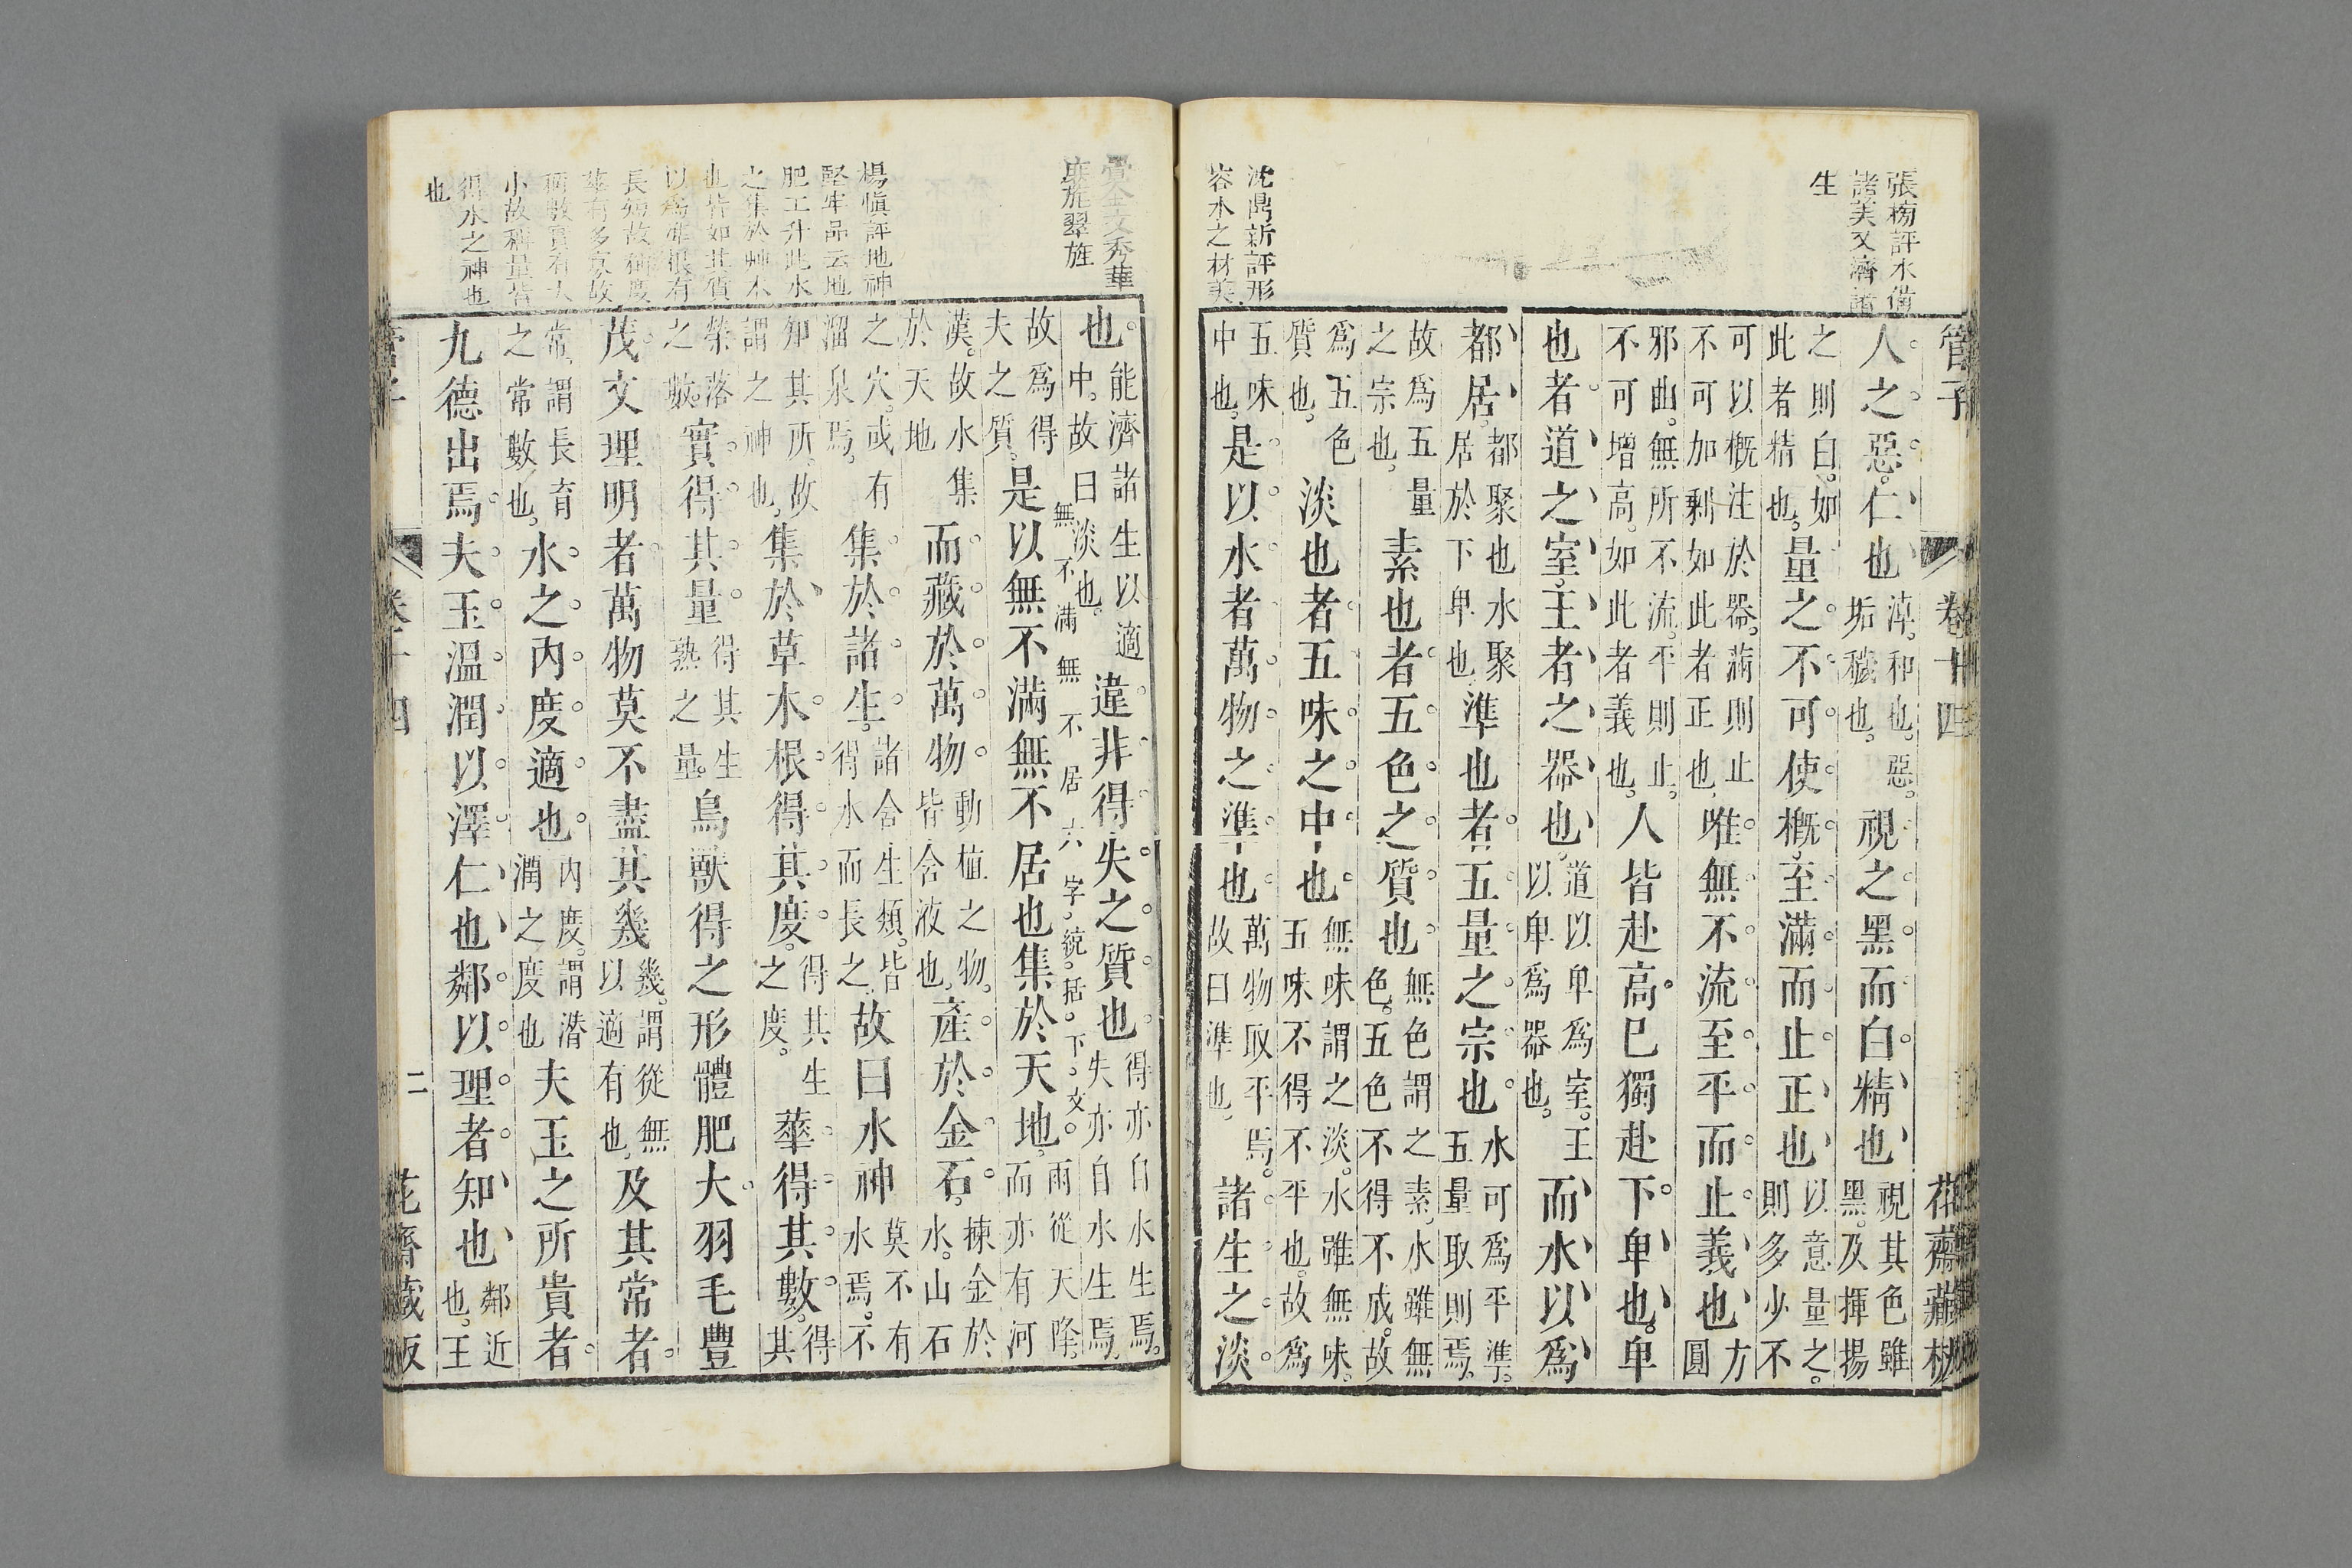 張榜評水備
諸美又濟諸
生
沈鼎新評形
容水之材美
管子 卷十四 花齋藏板
人之惡仁也淖和也惡垢穢也視之黑而白精也視其色雖黑及揮揚
之則白如此者精也量之不可使概至滿而止正也以意量之則多少不
可以概注於器滿則止不可加剩如此者正也唯無不流至平而止義也方圓
邪曲無所不流平則止不可增高如此者義也人皆赴高已獨赴下卑也卑
也者道之室王者之器也道以卑為室王以卑為器也而水以為
都居都聚也水聚居於下卑也準也者五量之宗也水可為平準五量取則焉
故為五量之宗也素也者五色之質也無色謂之素水雖無色五色不得不成故
為五色質也淡也者五味之中也無味謂之淡水雖無味五味不得不平也故為
五味中也是以水者萬物之準也萬物取平焉故曰準也諸生之淡
也能濟諸生以適中故曰淡也違非得失之質也得亦自水生焉失亦自水生焉
故為得夫之質是以無不滿無不居也集於天地雨從天降而亦有河
無不滿無不居六字統括下文
漢故水集於天地而藏於萬物動植之物皆含液也產於金石揀金於水山石
之穴或有溜泉焉集於諸生諸含生類皆得水而長之故曰水神莫不有水焉不
知其所故謂之神也集於草木根得其度得其生之度華得其數得其
榮落之數實得其量得其生熟之量鳥獸得之形體肥大羽毛豐
茂文理明者萬物莫不盡其幾幾謂從無以適有也及其常者
常謂長育之常數也水之內度適也內度謂潛潤之度也夫玉之所貴者
九德出焉夫玉溫潤以澤仁也鄰以理者知也鄰近也王
楊慎評地神
堅牢品云地
肥上升此水
之集於艸木
也皆如其質
以為華根有
長短故稱度
華有多寡故
稱數實有大
小故稱量皆
得水之神也
也
管子 卷十四 二 花齋藏板